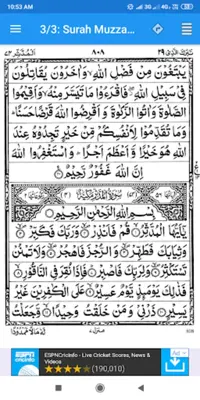 10:53 AM
3/3: Surah Muzza...
المزمل ٧٣
٨٠٨
تبرك الذي ٢٩
يَبْتَغُوْنَ مِنْ فَضْلِ اللّٰهِ ۙ وَاٰخَرُوْنَ يُقَاتِلُوْنَ
فِيْ سَبِيْلِ اللّٰهِ ۖ فَاقْرَءُوْا مَا تَيَسَّرَ مِنْهُ ۙ وَاَقِيْمُوا
الصَّلٰوةَ وَاٰتُوا الزَّكٰوةَ وَاَقْرِضُوا اللّٰهَ قَرْضًا حَسَنًا ؕ
وَمَا تُقَدِّمُوْا لِاَنْفُسِكُمْ مِّنْ خَيْرٍ تَجِدُوْهُ عِنْدَ
اللّٰهِ هُوَ خَيْرًا وَّاَعْظَمَ اَجْرًا ؕ وَاسْتَغْفِرُوا اللّٰهَ ؕ
اِنَّ اللّٰهَ غَفُوْرٌ رَّحِيْمٌ
بِسْمِ اللّٰهِ الرَّحْمٰنِ الرَّحِيْمِ
يٰۤاَيُّهَا الْمُدَّثِّرُ ۙ قُمْ فَاَنْذِرْ ۙ وَرَبَّكَ فَكَبِّرْ ۙ
وَثِيَابَكَ فَطَهِّرْ ۙ وَالرُّجْزَ فَاهْجُرْ ۙ وَلَا تَمْنُنْ
تَسْتَكْثِرُ ۙ وَلِرَبِّكَ فَاصْبِرْ ؕ فَاِذَا نُقِرَ فِي النَّاقُوْرِ ۙ
فَذٰلِكَ يَوْمَئِذٍ يَّوْمٌ عَسِيْرٌ ۙ عَلَى الْكٰفِرِيْنَ غَيْرُ
يَسِيْرٍ ذَرْنِيْ وَمَنْ خَلَقْتُ وَحِيْدًا ۙ وَّجَعَلْتُ
لَهٗ مَالًا مَّمْدُوْدًا
منزل ٧
ESPNCricinfo - Live Cricket Scores, News & Videos
(190,010)
Ad
Install